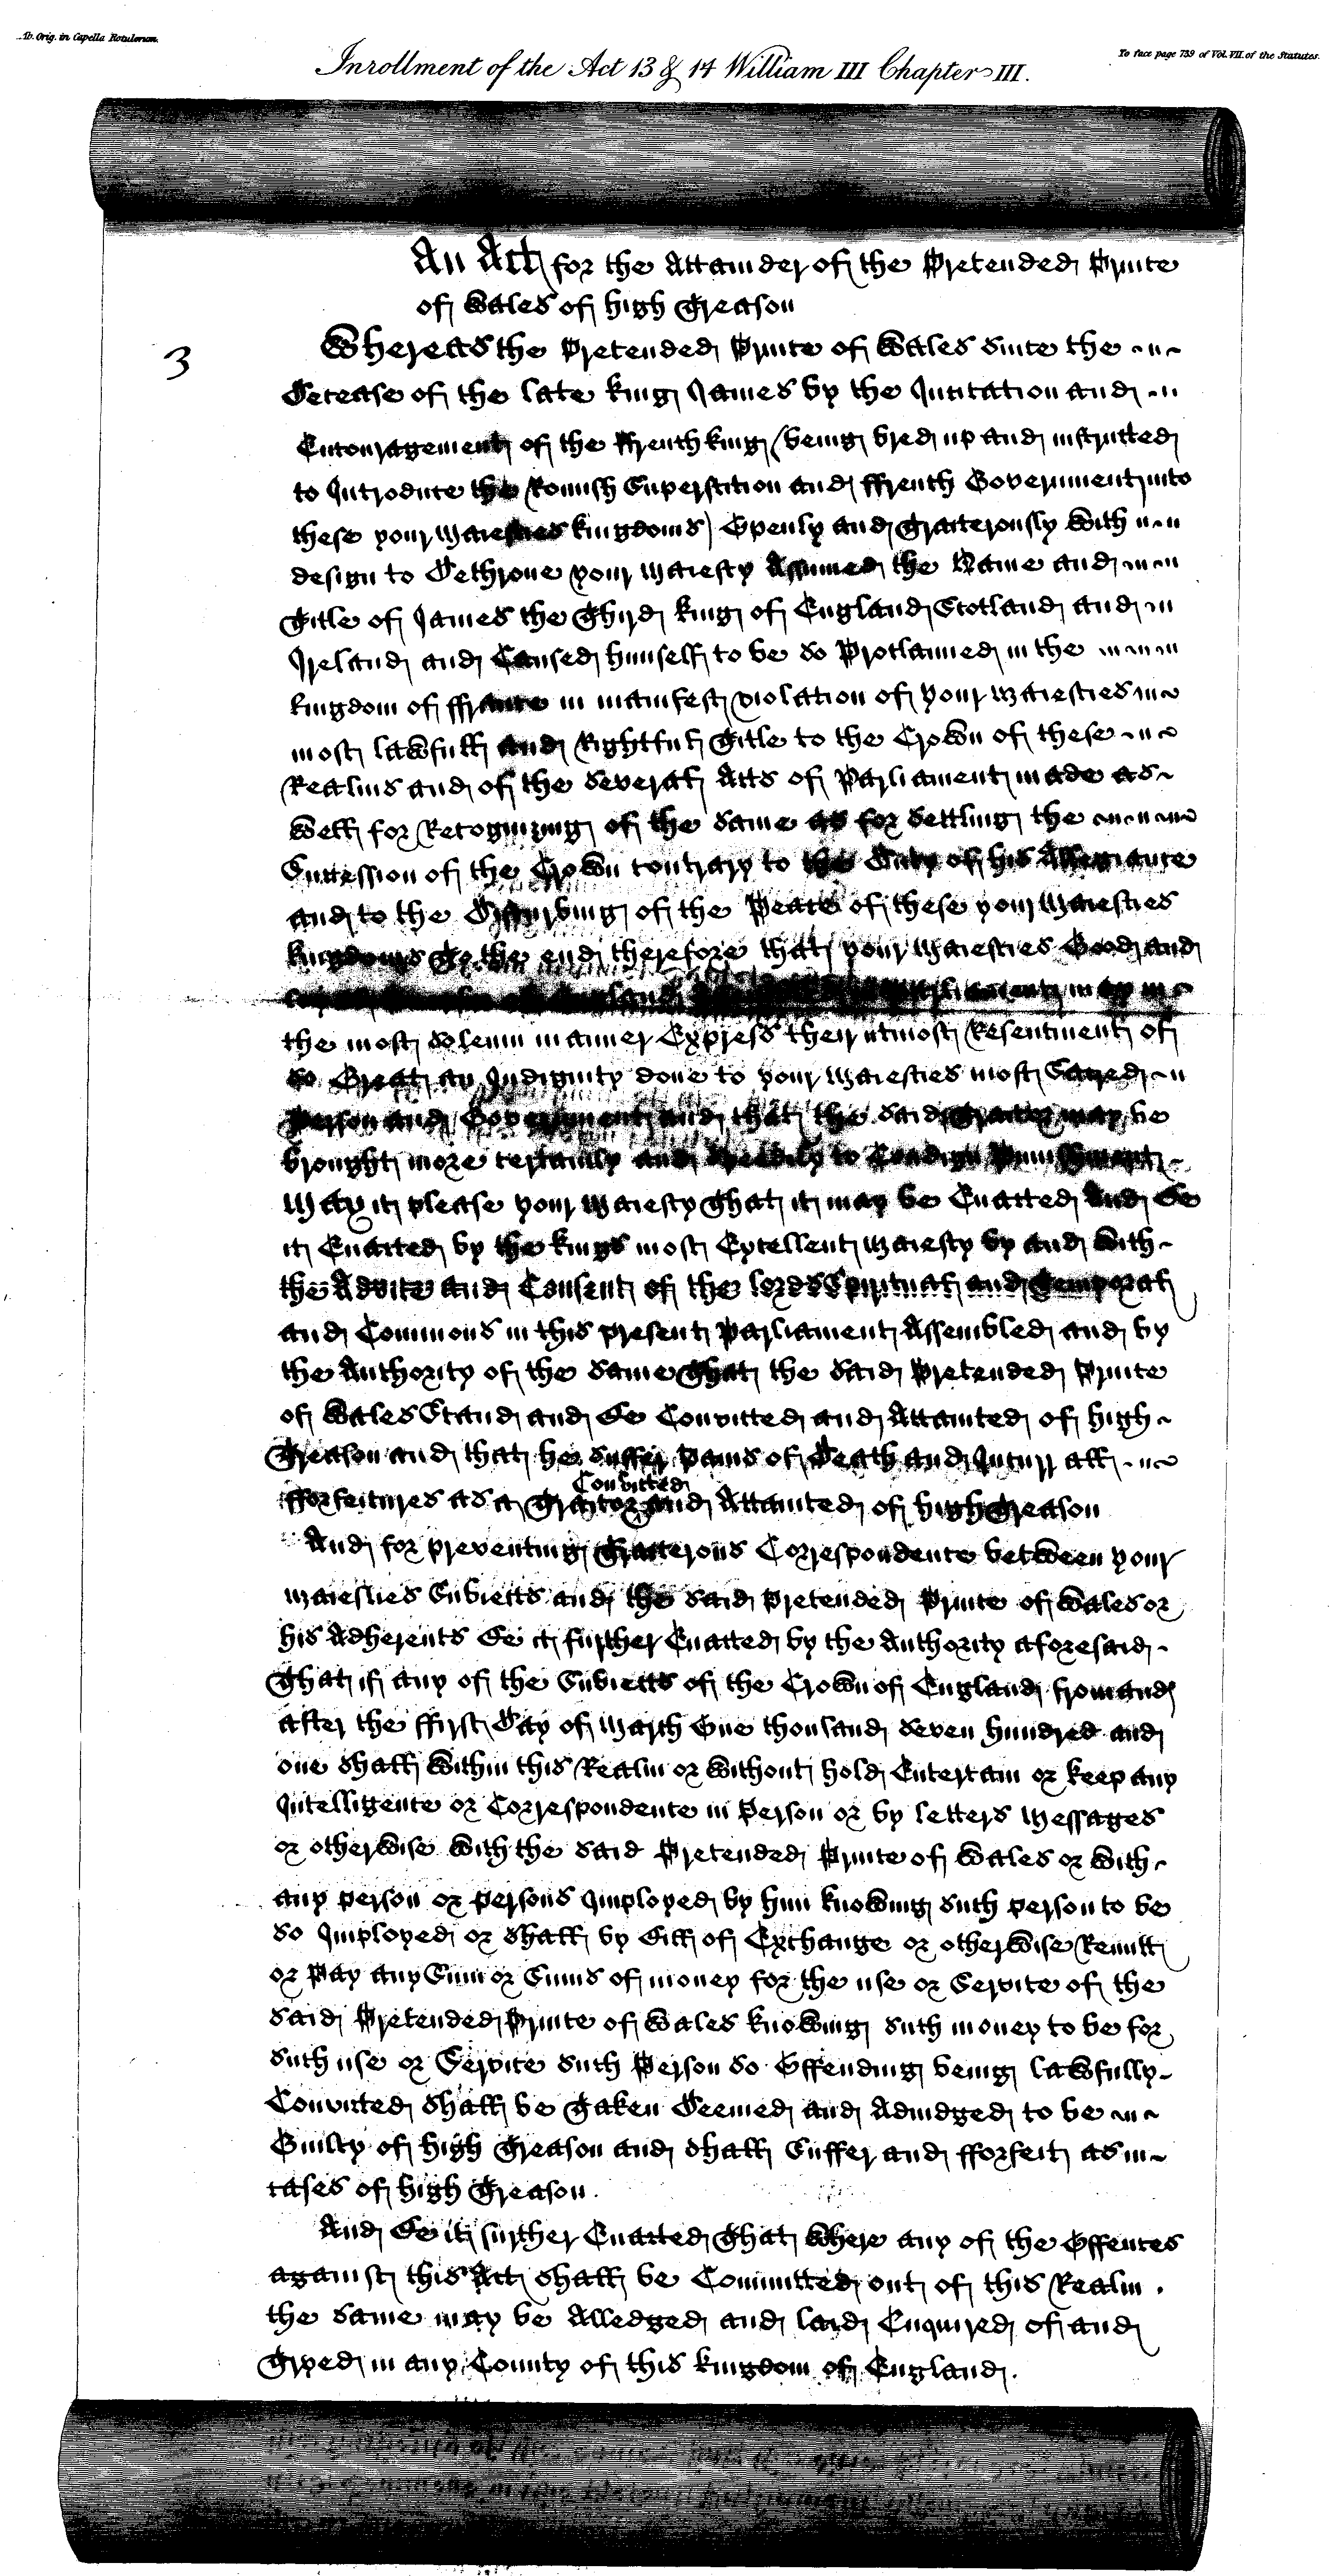 Ab. Orig. in Capella Rotulorum.
To face page 739 of Vol. VII. of the Statutes.
Inrollment of the Act 13 & 14 William III Chapter III.
An Act for the Attainder of the Pretended Prince
of Wales of High Treason
3
Whereas the Pretended Prince of Wales Since the
Decease of the late King James by the Incitation and
Encouragement of the French King (being bred up and instructed
to Introduce the Romish Superstition and French Government into
these your Majesties Kingdoms) Openly and Traiterously with
design to Dethrone your Majesty Assumed the Name and
Title of James the Third King of England Scotland and
Ireland and Caused himself to be so Proclaimed in the
Kingdom of ffrance in manifest violation of your Majesties
most lawfull and Rightfull Title to the Crown of these
Realms and of the Severall Acts of Parliament made as
well for Recognizing of the same as for Settling the
Succession of the Crown contrary to the Duty of his Allegiance
and to the Disturbing of the Peace of these your Majesties
Kingdoms To the end therefore that your Majesties Good and
England Parliament may in
the most Solemn manner Express their utmost Resentment of
so Great an Indignity done to your Majesties most Sacred
Person and Government and that the said Traitor may be
brought more certainly and Speedily to Condign Punishment
May it please your Majesty That it may be Enacted And Be
it Enacted by the Kings most Excellent Majesty by and with
the Advice and Consent of the lords Spirituall and Temporall
and Commons in this present Parliament Assembled and by
the Authority of the same That the said Pretended Prince
of Wales Stand and Be Convicted and Attainted of high
Treason and that he suffer Pains of Death and Incurr all
Convicted
fforfeitures as a Traitor and Attainted of high Treason
And for preventing Traiterous Correspondence between your
Majesties Subjects and the said Pretended Prince of Wales or
his Adherents Be it further Enacted by the Authority aforesaid
That if any of the Subjects of the Crown of England from and
after the ffirst Day of March One thousand Seven hundred and
one shall within this Realm or without hold Entertain or keep any
Intelligence or Correspondence in Person or by letters Messages
or otherwise with the said Pretended Prince of Wales or with
any person or persons Imployed by him knowing such person to be
so Imployed or shall by Bill of Exchange or otherwise Remitt
or Pay any Sum or Sums of money for the use or Service of the
said Pretended Prince of Wales knowing such money to be for
such use or Service such Person so Offending being lawfully
Convicted shall be Taken Deemed and Adjudged to be
Guilty of high Treason and shall Suffer and fforfeit as in
cases of high Treason.
And Be it further Enacted That where any of the Offences
against this Act shall be Committed out of this Realm
the same may be Alledged and laid Enquired of and
Tryed in any County of this Kingdom of England.